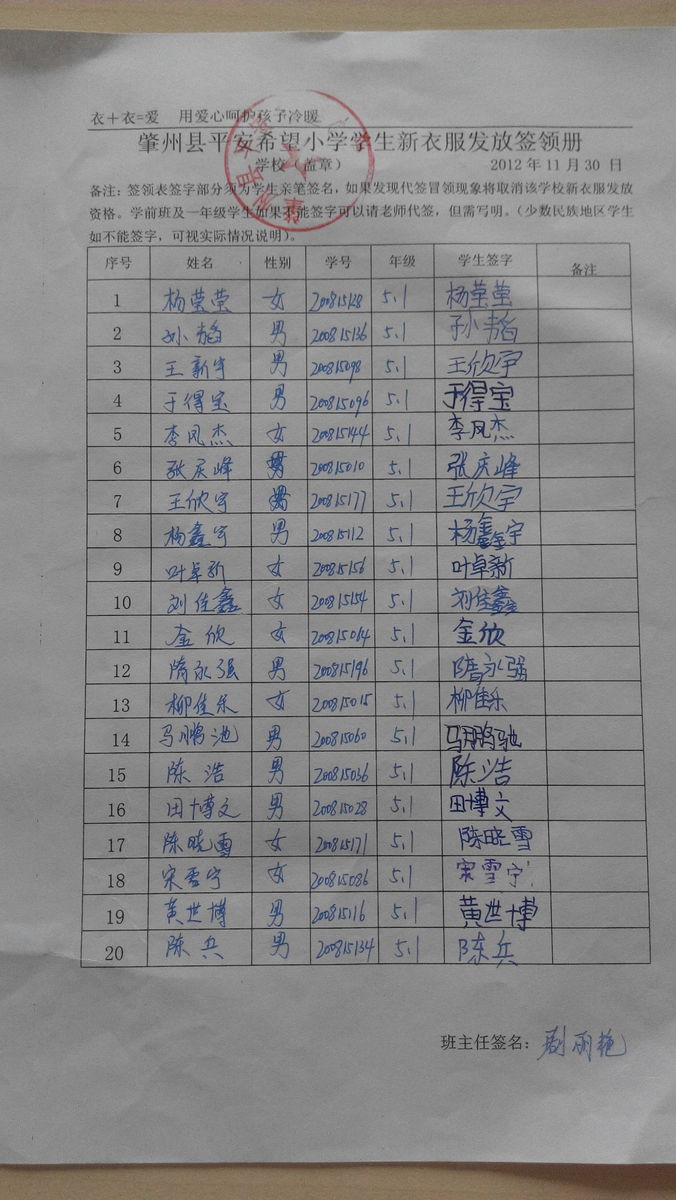 衣+衣=爱 用爱心呵护孩子冷暖
肇州县平安希望小学学生新衣服发放签领册
学校(盖章) 2012年11月30日
备注:签领表签字部分须为学生亲笔签名,如果发现代签冒领现象将取消该学校新衣服发放
资格。学前班及一年级学生如果不能签字可以请老师代签,但需写明。(少数民族地区学生
如不能签字,可视实际情况说明)。
序号 姓名 性别 学号 年级 学生签字 备注
1 杨莹莹 女 200815128 5.1 杨莹莹
2 孙韬 男 200815136 5.1 孙韬
3 王新宇 男 200815098 5.1 王欣宇
4 于得宝 男 200815096 5.1 于得宝
5 李凤杰 女 200815144 5.1 李凤杰
6 张庆峰 男 200815010 5.1 张庆峰
7 王欣宇 男 200815177 5.1 王欣宇
8 杨鑫宇 男 200815112 5.1 杨鑫宇
9 叶卓新 女 200815156 5.1 叶卓新
10 刘佳鑫 女 200815154 5.1 刘佳鑫
11 金欣 女 200815014 5.1 金欣
12 隋永强 男 200815196 5.1 隋永强
13 柳佳乐 女 200815015 5.1 柳佳乐
14 马鹏池 男 200815060 5.1 马鹏驰
15 陈浩 男 200815036 5.1 陈浩
16 田博文 男 200815028 5.1 田博文
17 陈晓雪 女 200815171 5.1 陈晓雪
18 宋雪宁 女 200815086 5.1 宋雪宁
19 黄世博 男 200815116 5.1 黄世博
20 陈兵 男 200815134 5.1 陈兵
班主任签名: 丽艳